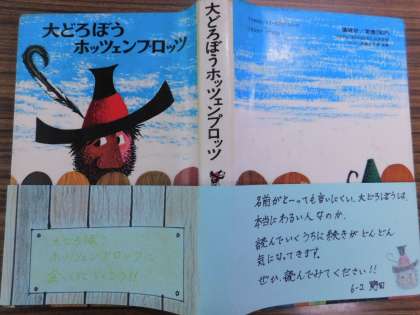 大どろぼう
ホッツェンプロッツ
大どろぼうホッツェンプロッツ
大どろぼう
ホッツェンプロッツに
会いにいこう!!
名前がとーっても言いにくい、大どろぼうは、
本当にわるい人なのか、
読んでいくうちに続きがどんどん
気になってきます。
ぜひ、読んでみてください!!
6-2